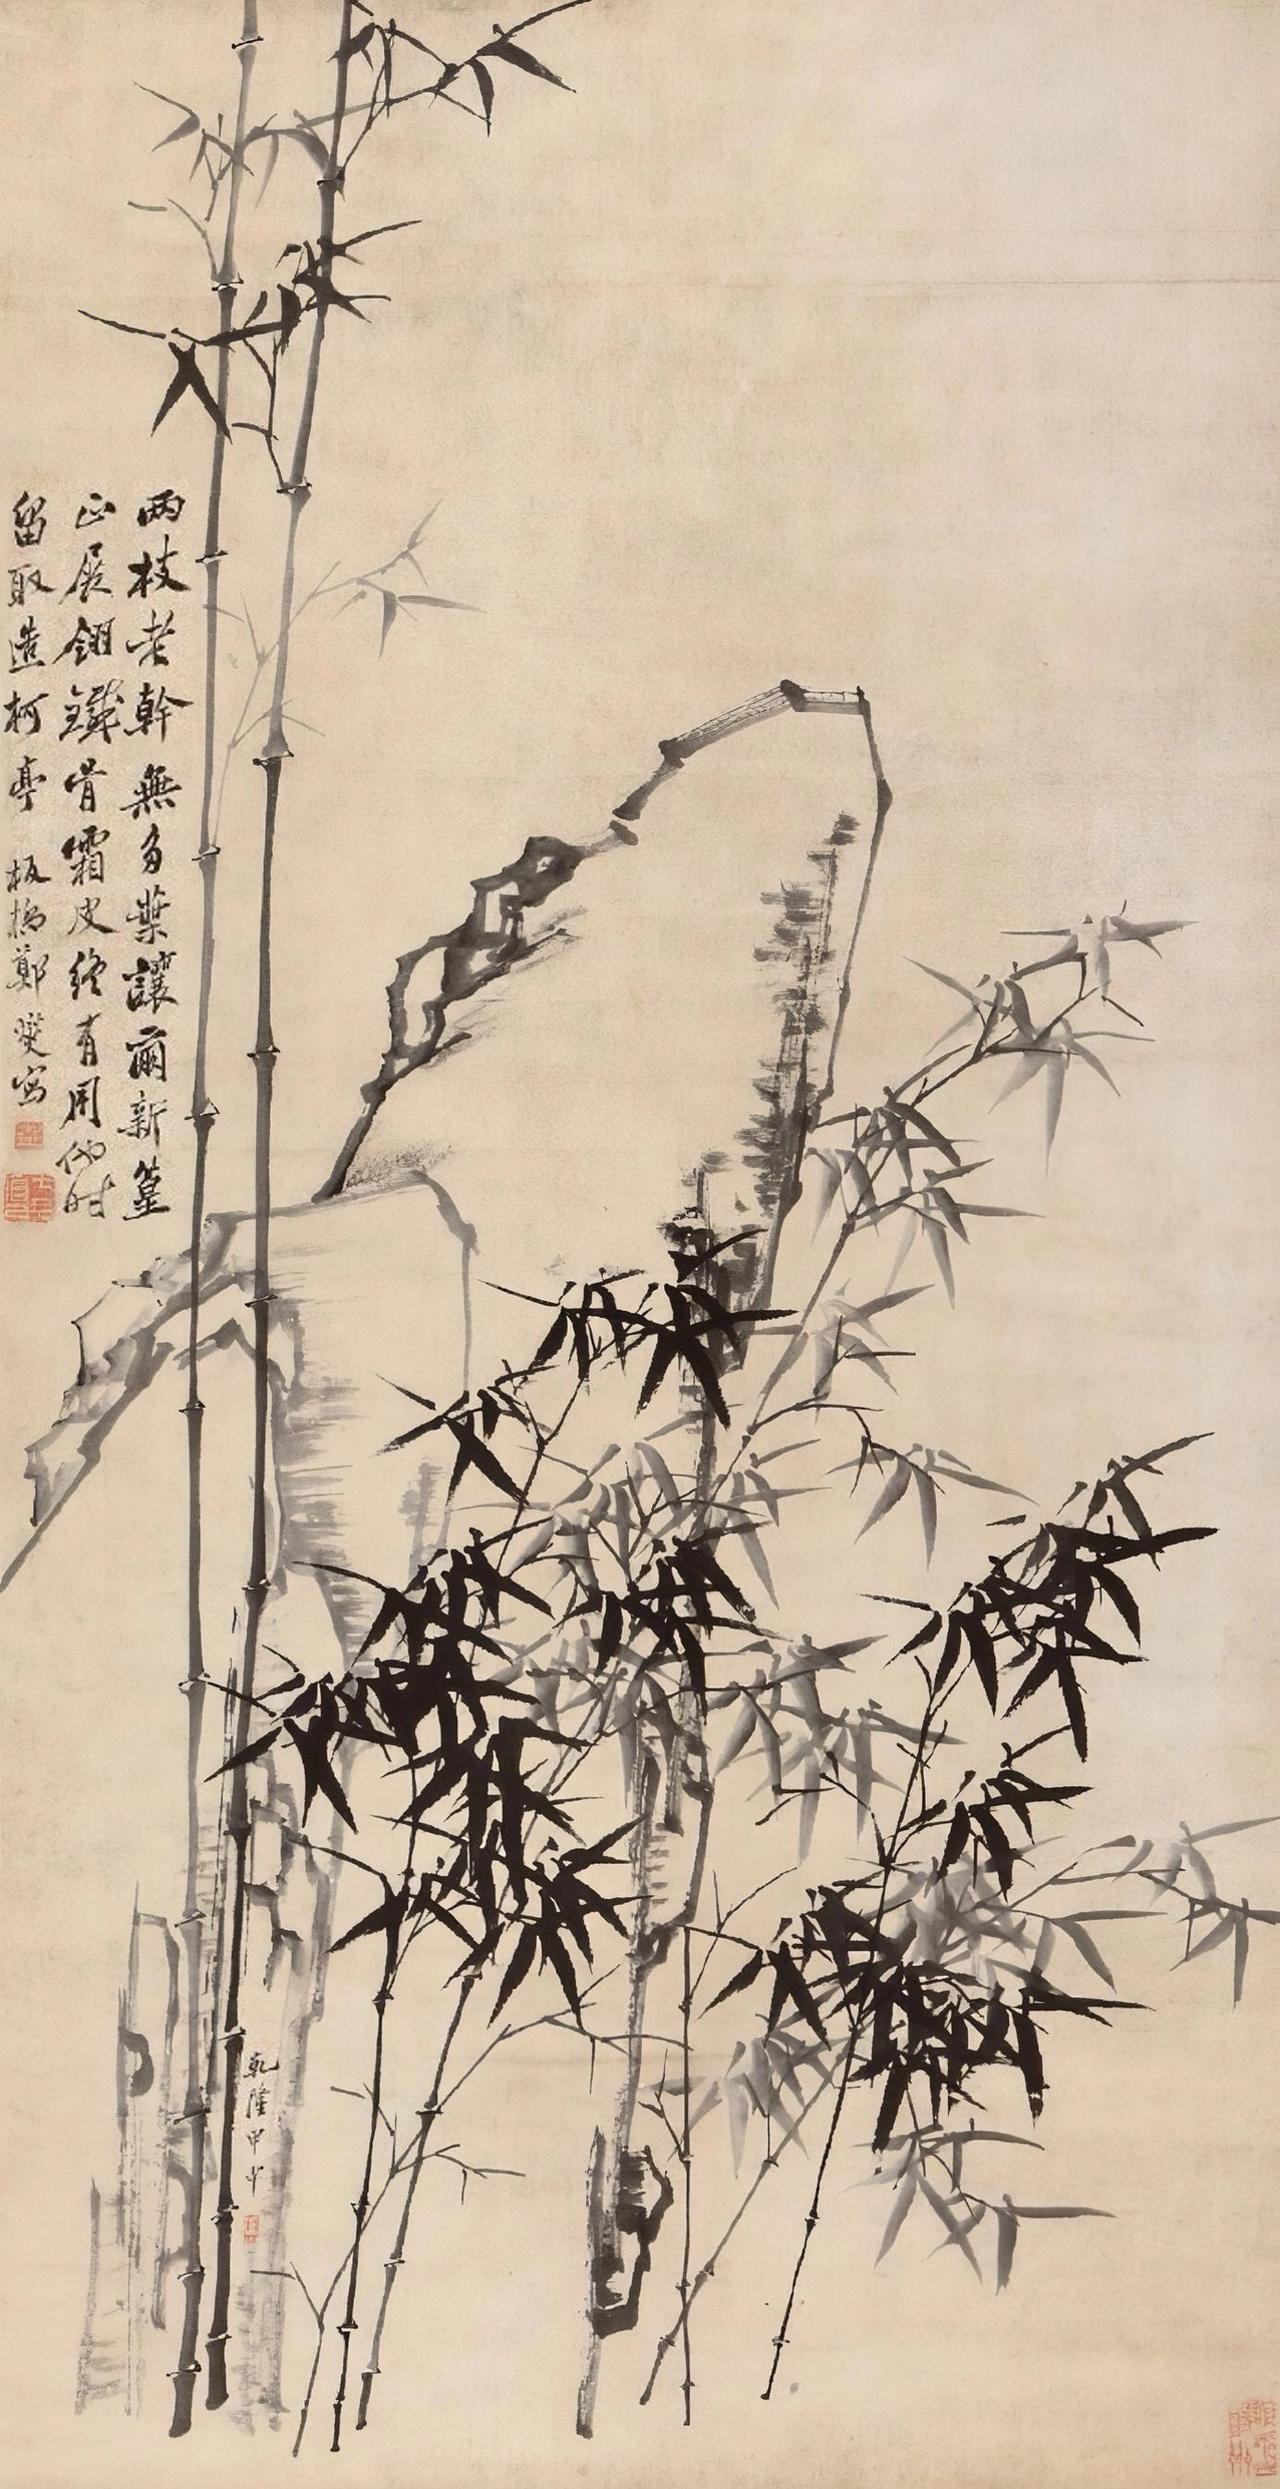 兩枝老幹無多葉讓爾新篁
正展翎鐵骨霜皮終有用他時
留取造柯亭 板橋鄭燮寫
乾隆甲申